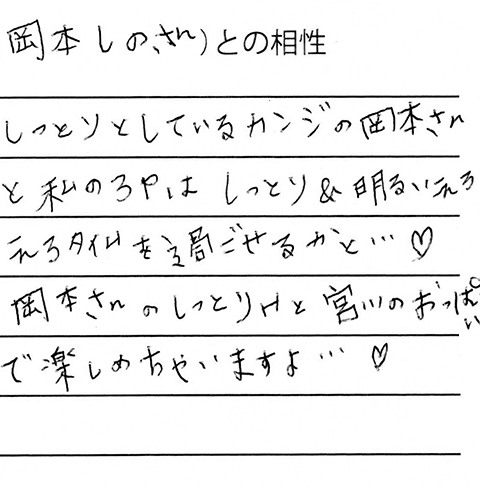 岡本しのさん)との相性
しっとりとしているカンジの岡本さん
と私の3Pは しっとり&明るいえろ
えろタイムを過ごせるかと…♡
岡本さんのしっとりHと宮川のおっぱい
で楽しめちゃいますよ…♡